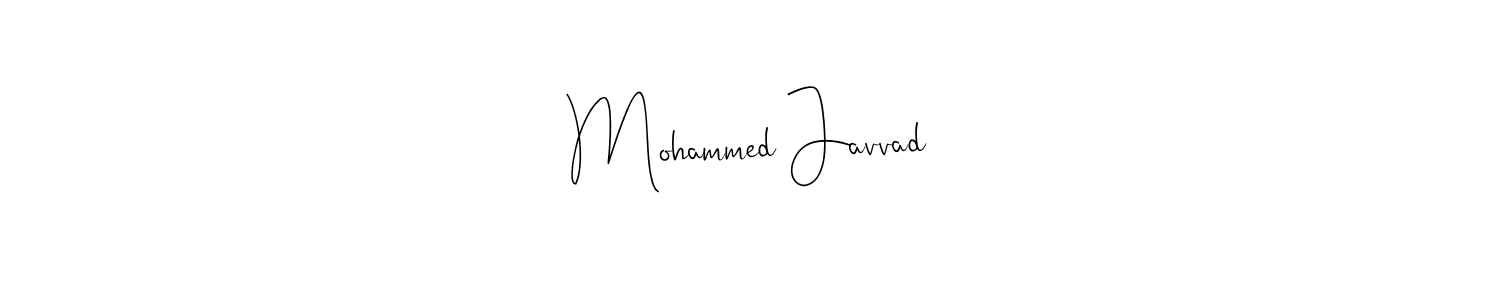 Mohammed Javvad